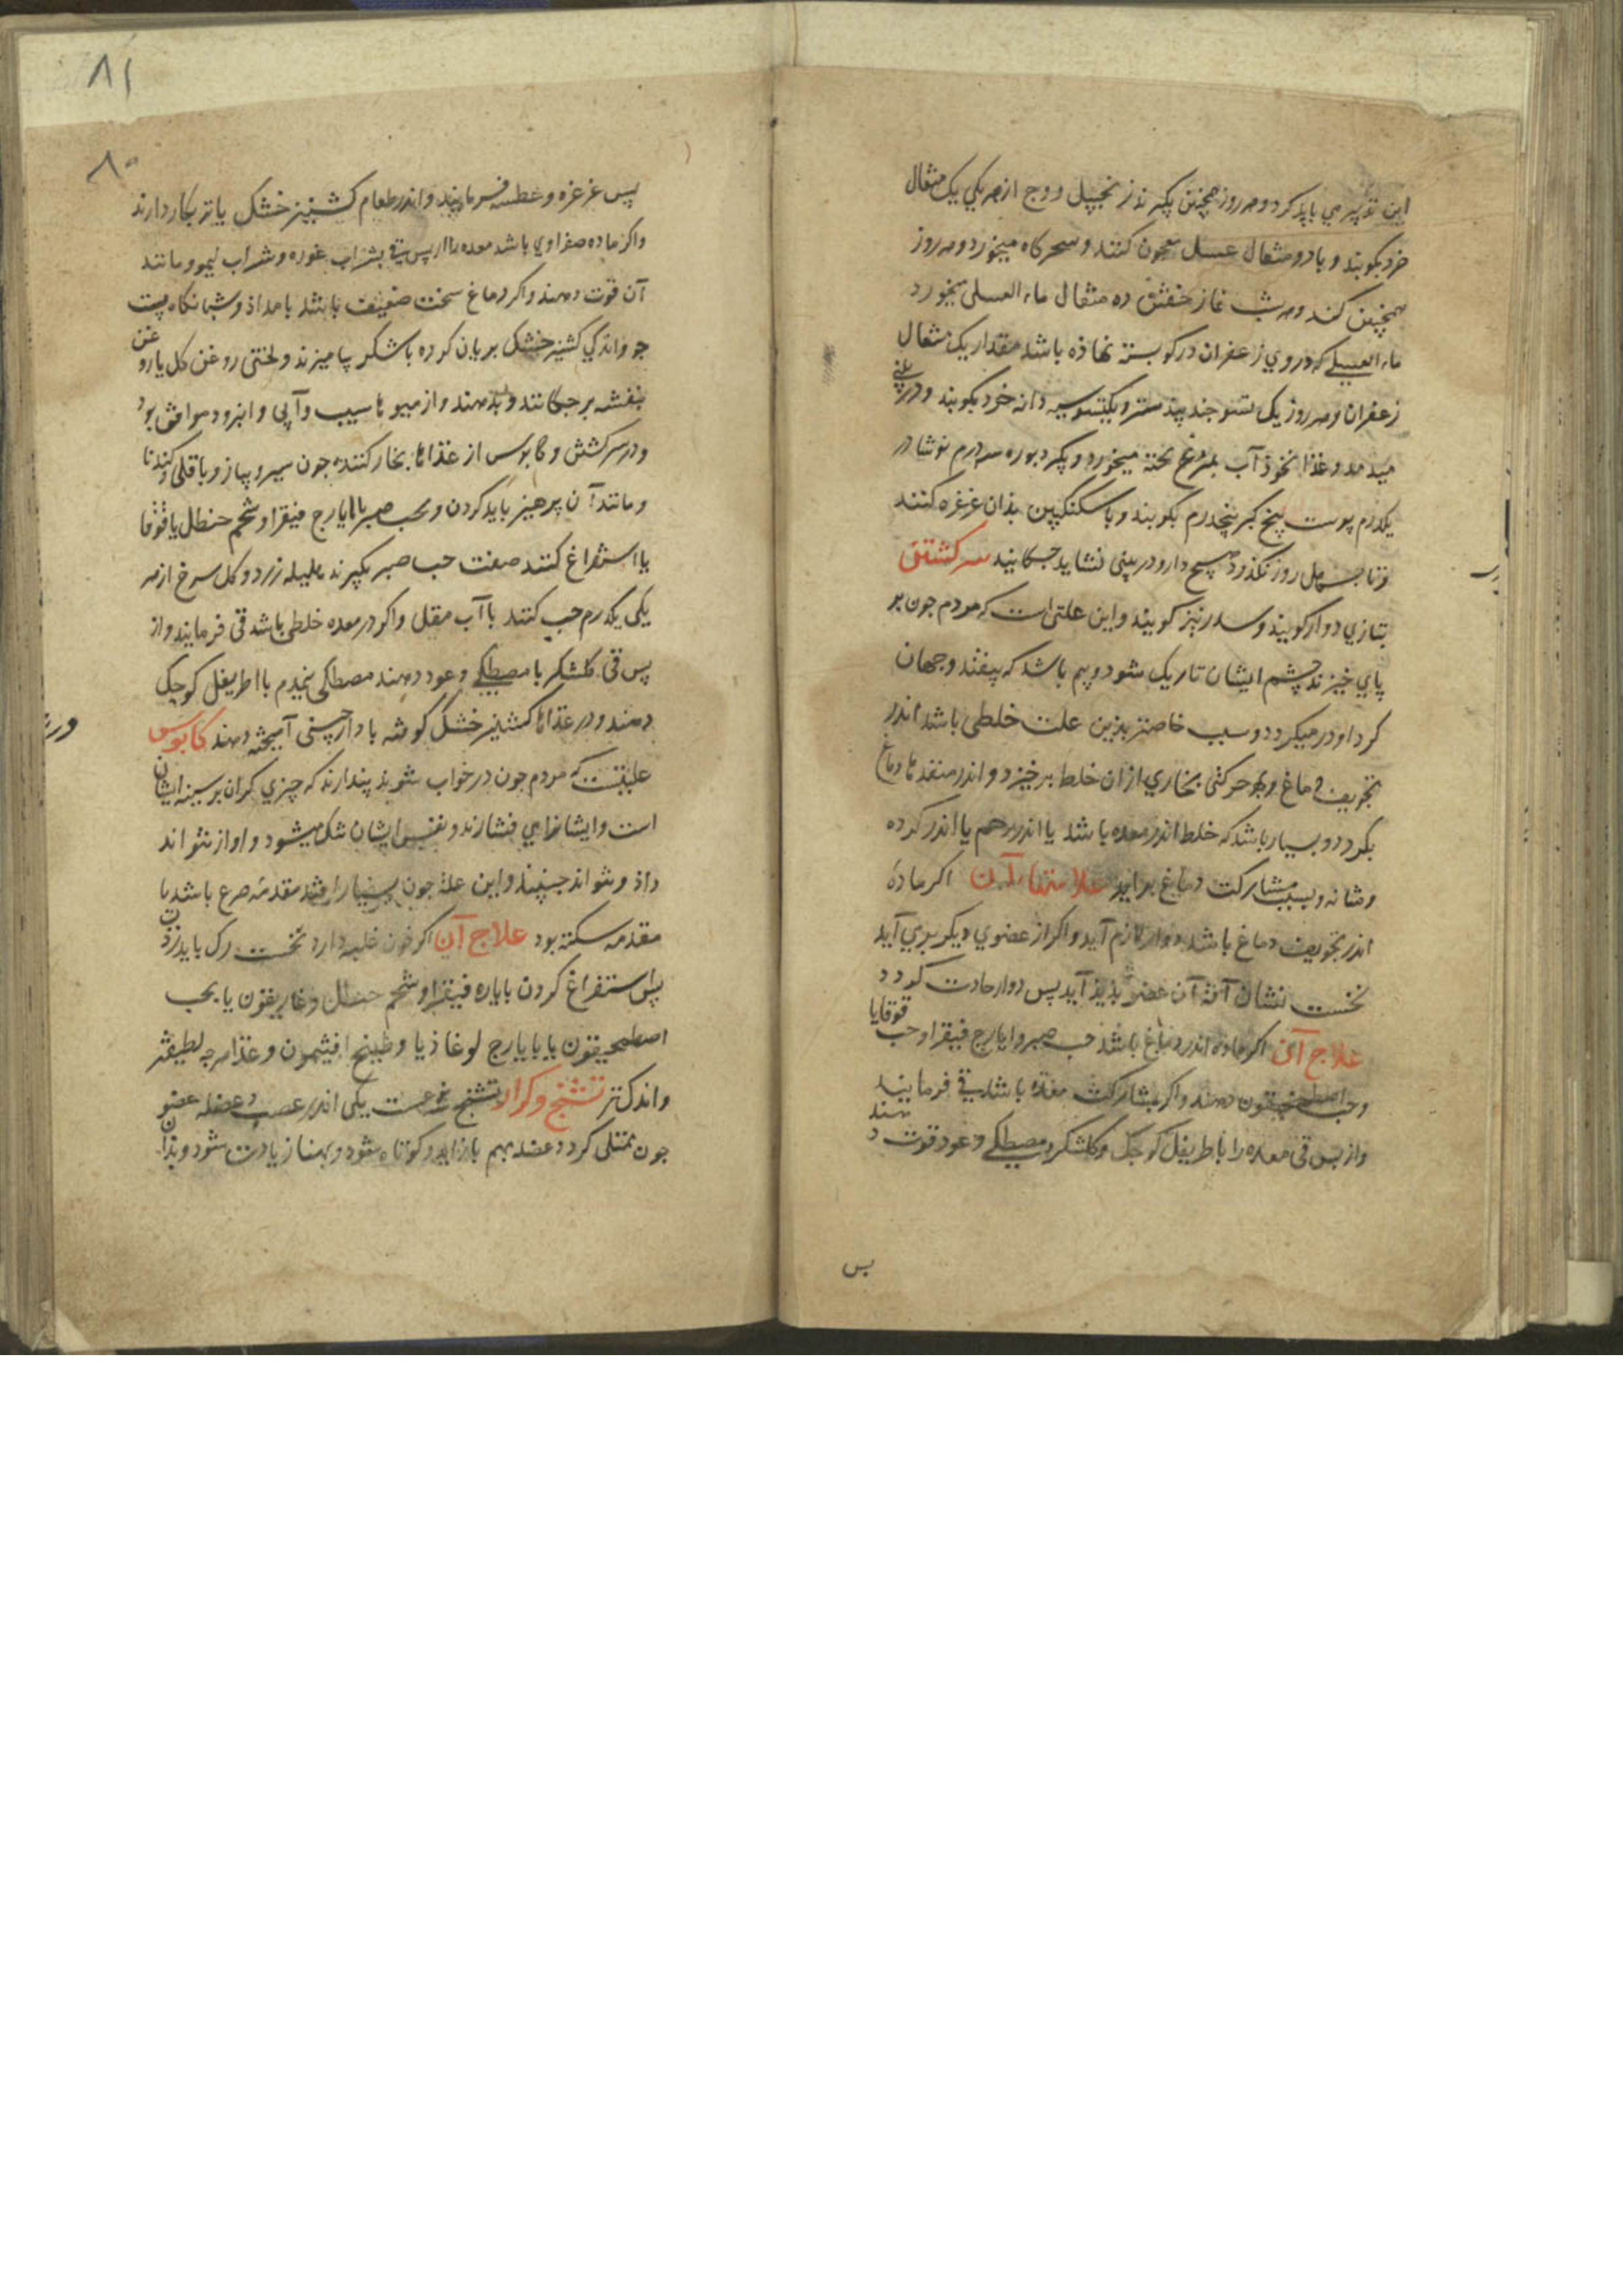 این تدبیر می باید کرد و هر روز همچنین بگیرند زنجبیل و وج از هر یکی یک مثقال
خرد بکوبند و با دو مثقال عسل معجون کنند و سحرگاه میخورد و هر روز
همچنین کند و هر شب نماز خفتن ده مثقال ماء العسلی میخورد
ماء العسلی که در وی زعفران در کو بسته نهاذه باشد مقدار یک مثقال
زعفران و هر روز یک تسو جند بیدستر و یک تسو سیه دانه خرد بکوبند و در بینی
میدمد و غذا نخوذ آب بمرغ پخته میخورد و بگیرد بوره سه درم نوشادر
یکدرم پوست بیخ کبر پنجدرم بکوبند و با سکنگبین بذان غرغره کنند
و تا چهل روز نگذرد هیچ دارو در بینی نشاید چکانید سرکشتن
بتازی دوار کویند و سدر نیز کویند و این علتی است که مردم جون بر
پای خیزند چشم ایشان تاریک شود و بیم باشد که بیفتند و جهان
کرد او در میکردد و سبب خاصتر بذین علت خلطی باشد اندر
تجویف دماغ و بهر حرکتی بخاری ازان خلط برخیزد و اندر منفذها دماغ
بکردد و بسیار باشد که خلط اندر معده باشد یا اندر رحم یا اندر کرده
و مثانه و بسبب مشارکت دماغ براید علامتهاء آن اکر ماده
اندر تجویف دماغ باشد دوار لازم آید و اکر از عضوی دیکر برمی آید
نخست نشان آفة آن عضو بذیذ آید پس دوار حادث کردد
علاج آن اکر ماده اندر دماغ باشد حب صبر و ایارج فیقرا و حب قوقایا
و حب اصطمخیقون دهند و اکر بمشارکت معده باشد قی فرمایند
و از پس قی معده را باطریفل کوجک و کلشکر و مصطکی و عود قوت دهند
بس
۸۱
۸۰
پس غرغره و عطسه فرمایند و اندر طعام کشنیز خشک یا تر بکار دارند
و اکر ماده صفراوی باشد معده را از پس قی بشراب غوره و شراب لیمو و مانند
آن قوت دهند و اکر دماغ سخت ضعیف باشد بامداذ و شبانکاه پست
جو و اندکی کشنیز خشک بریان کرده با شکر بیامیزند و لختی روغن کل یا روغن
بنفشه بر چکانند و بدهند و از میوها سیب و آبی و امرود موافق بود
و در سرکشتن و کابوس از غذاها بخار کننده جون سیر و پیاز و باقلی و کندنا
و مانند آن پرهیز باید کردن و بحب صبر با ایارج فیقرا و شحم حنظل یا قوقا
یا استفراغ کنند صفت حب صبر بکیرند هلیله زرد و کل سرخ از هر
یکی یکدرم حب کنند با آب مقل و اکر در معده خلطی باشد قی فرمایند و از
پس قی کلشکر با مصطکی و عود دهند مصطکی نیمدرم با اطریفل کوجک
دهند و در غذاها کشنیز خشک کوفته با دارچینی آمیخته دهند کابوس
علیتست که مردم جون در خواب شوند پندارند که چیزی کران بر سینه ایشان
است و ایشانرا می فشارند و نفس ایشان تنک میشود و اواز نتواند
داذ و نتواند جنبید و این علة جون بسیار افتد مقدمه صرع باشد یا
مقدمه سکته بود علاج آن اکر خون غلبه دارد نخست رک باید زدن
پس استفراغ کردن بایاره فیقرا و شحم حنظل و غاریقون یا بحب
اصطمحیقون یا بایارج لوغاذیا و طبیخ افیثمون و غذا هرچه لطیفتر
و اندک تر تشنج و کزاز تشنج نوعست یکی اندر عصب و عضله عضو
جون ممتلی کردد عضله بهم باز آید و کوتاه شود و بهنا زیادت شود و بذان